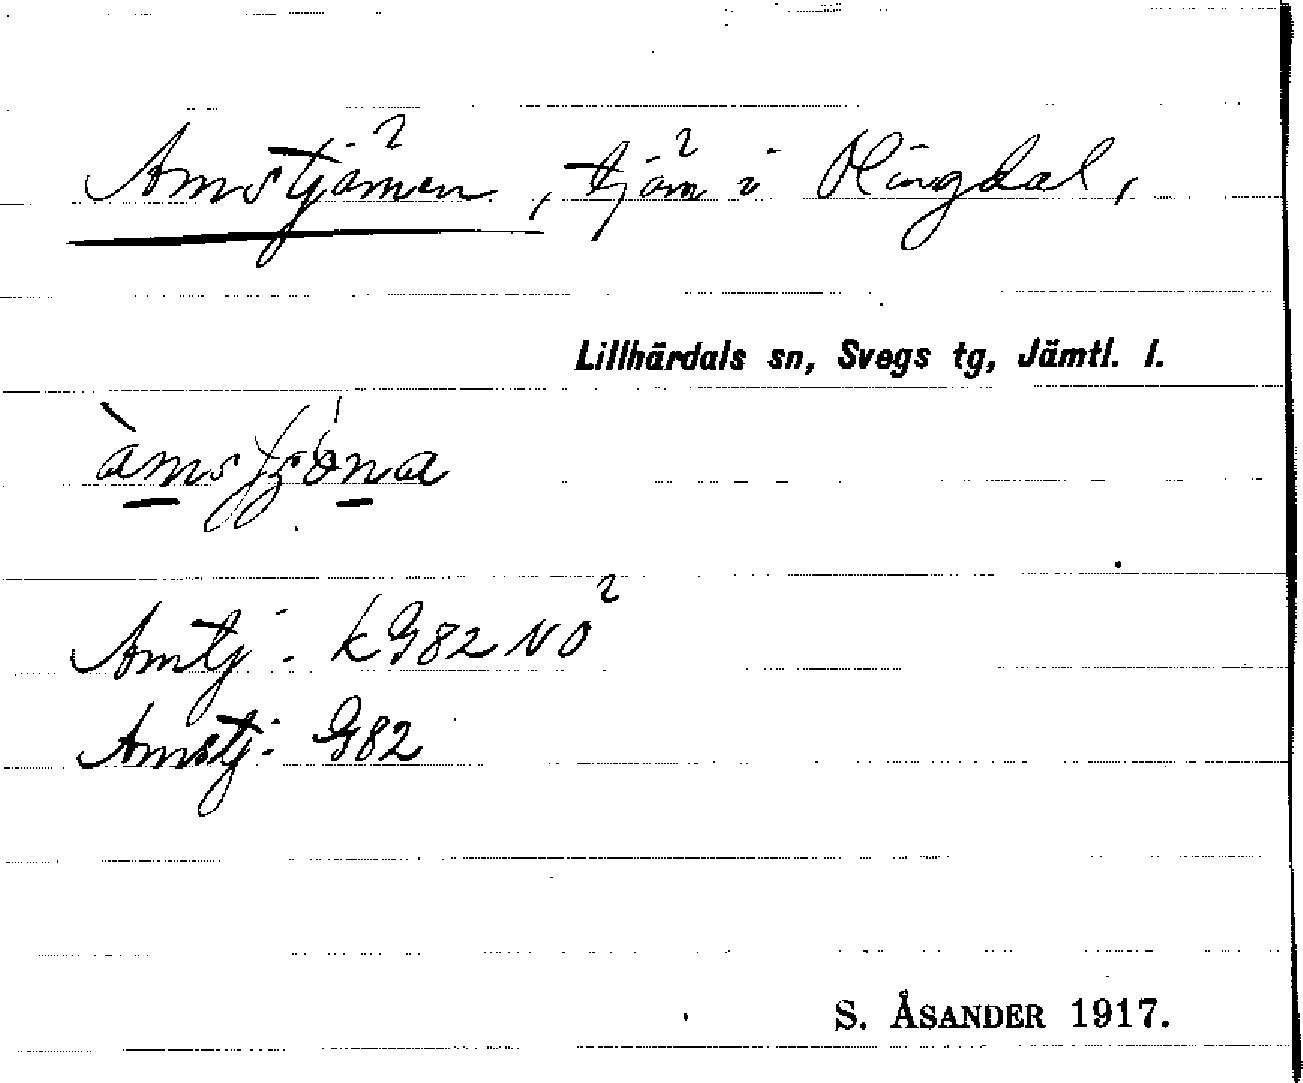 Amstjärnen, tjärn i Olingdal,
Lillhärdals sn, Svegs tg, Jämtl. l.
Amtj: k G82 NO²
Amstj: G82
S. ÅSANDER 1917.